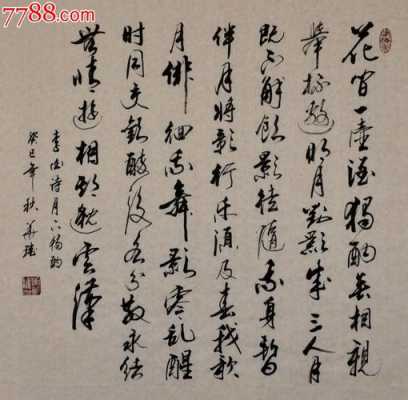 7788.com
花間一壺酒獨酌無相親
舉杯邀明月對影成三人月
既不解飲影徒隨我身暫
伴月將影行樂須及春我歌
月徘徊我舞影零亂醒
時同交歡醉後各分散永結
無情遊相期邈雲漢
李白詩月下獨酌
癸巳年秋